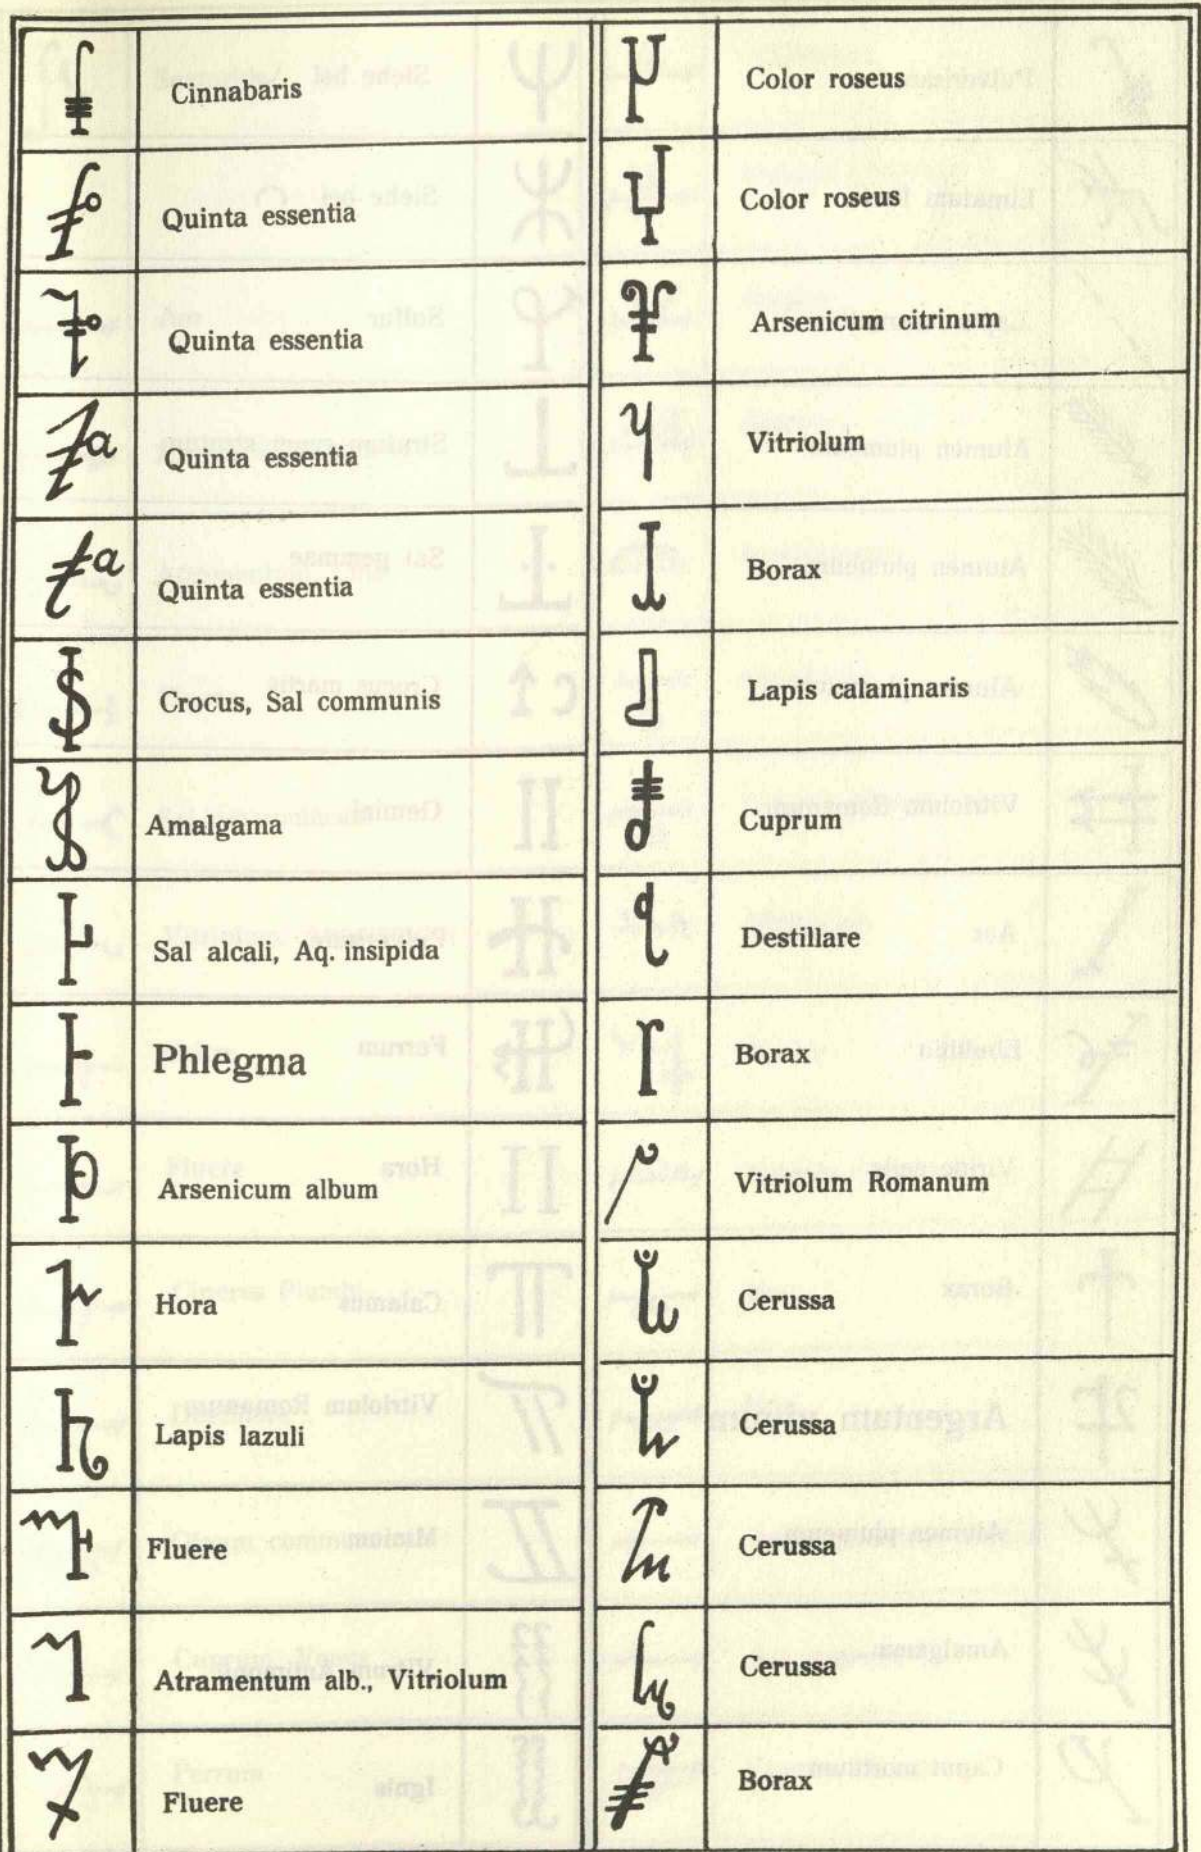 Cinnabaris
Quinta essentia
Quinta essentia
Quinta essentia
Quinta essentia
Crocus, Sal communis
Amalgama
Sal alcali, Aq. insipida
Phlegma
Arsenicum album
Hora
Lapis lazuli
Fluere
Atramentum alb., Vitriolum
Fluere
Color roseus
Color roseus
Arsenicum citrinum
Vitriolum
Borax
Lapis calaminaris
Cuprum
Destillare
Borax
Vitriolum Romanum
Cerussa
Cerussa
Cerussa
Cerussa
Borax